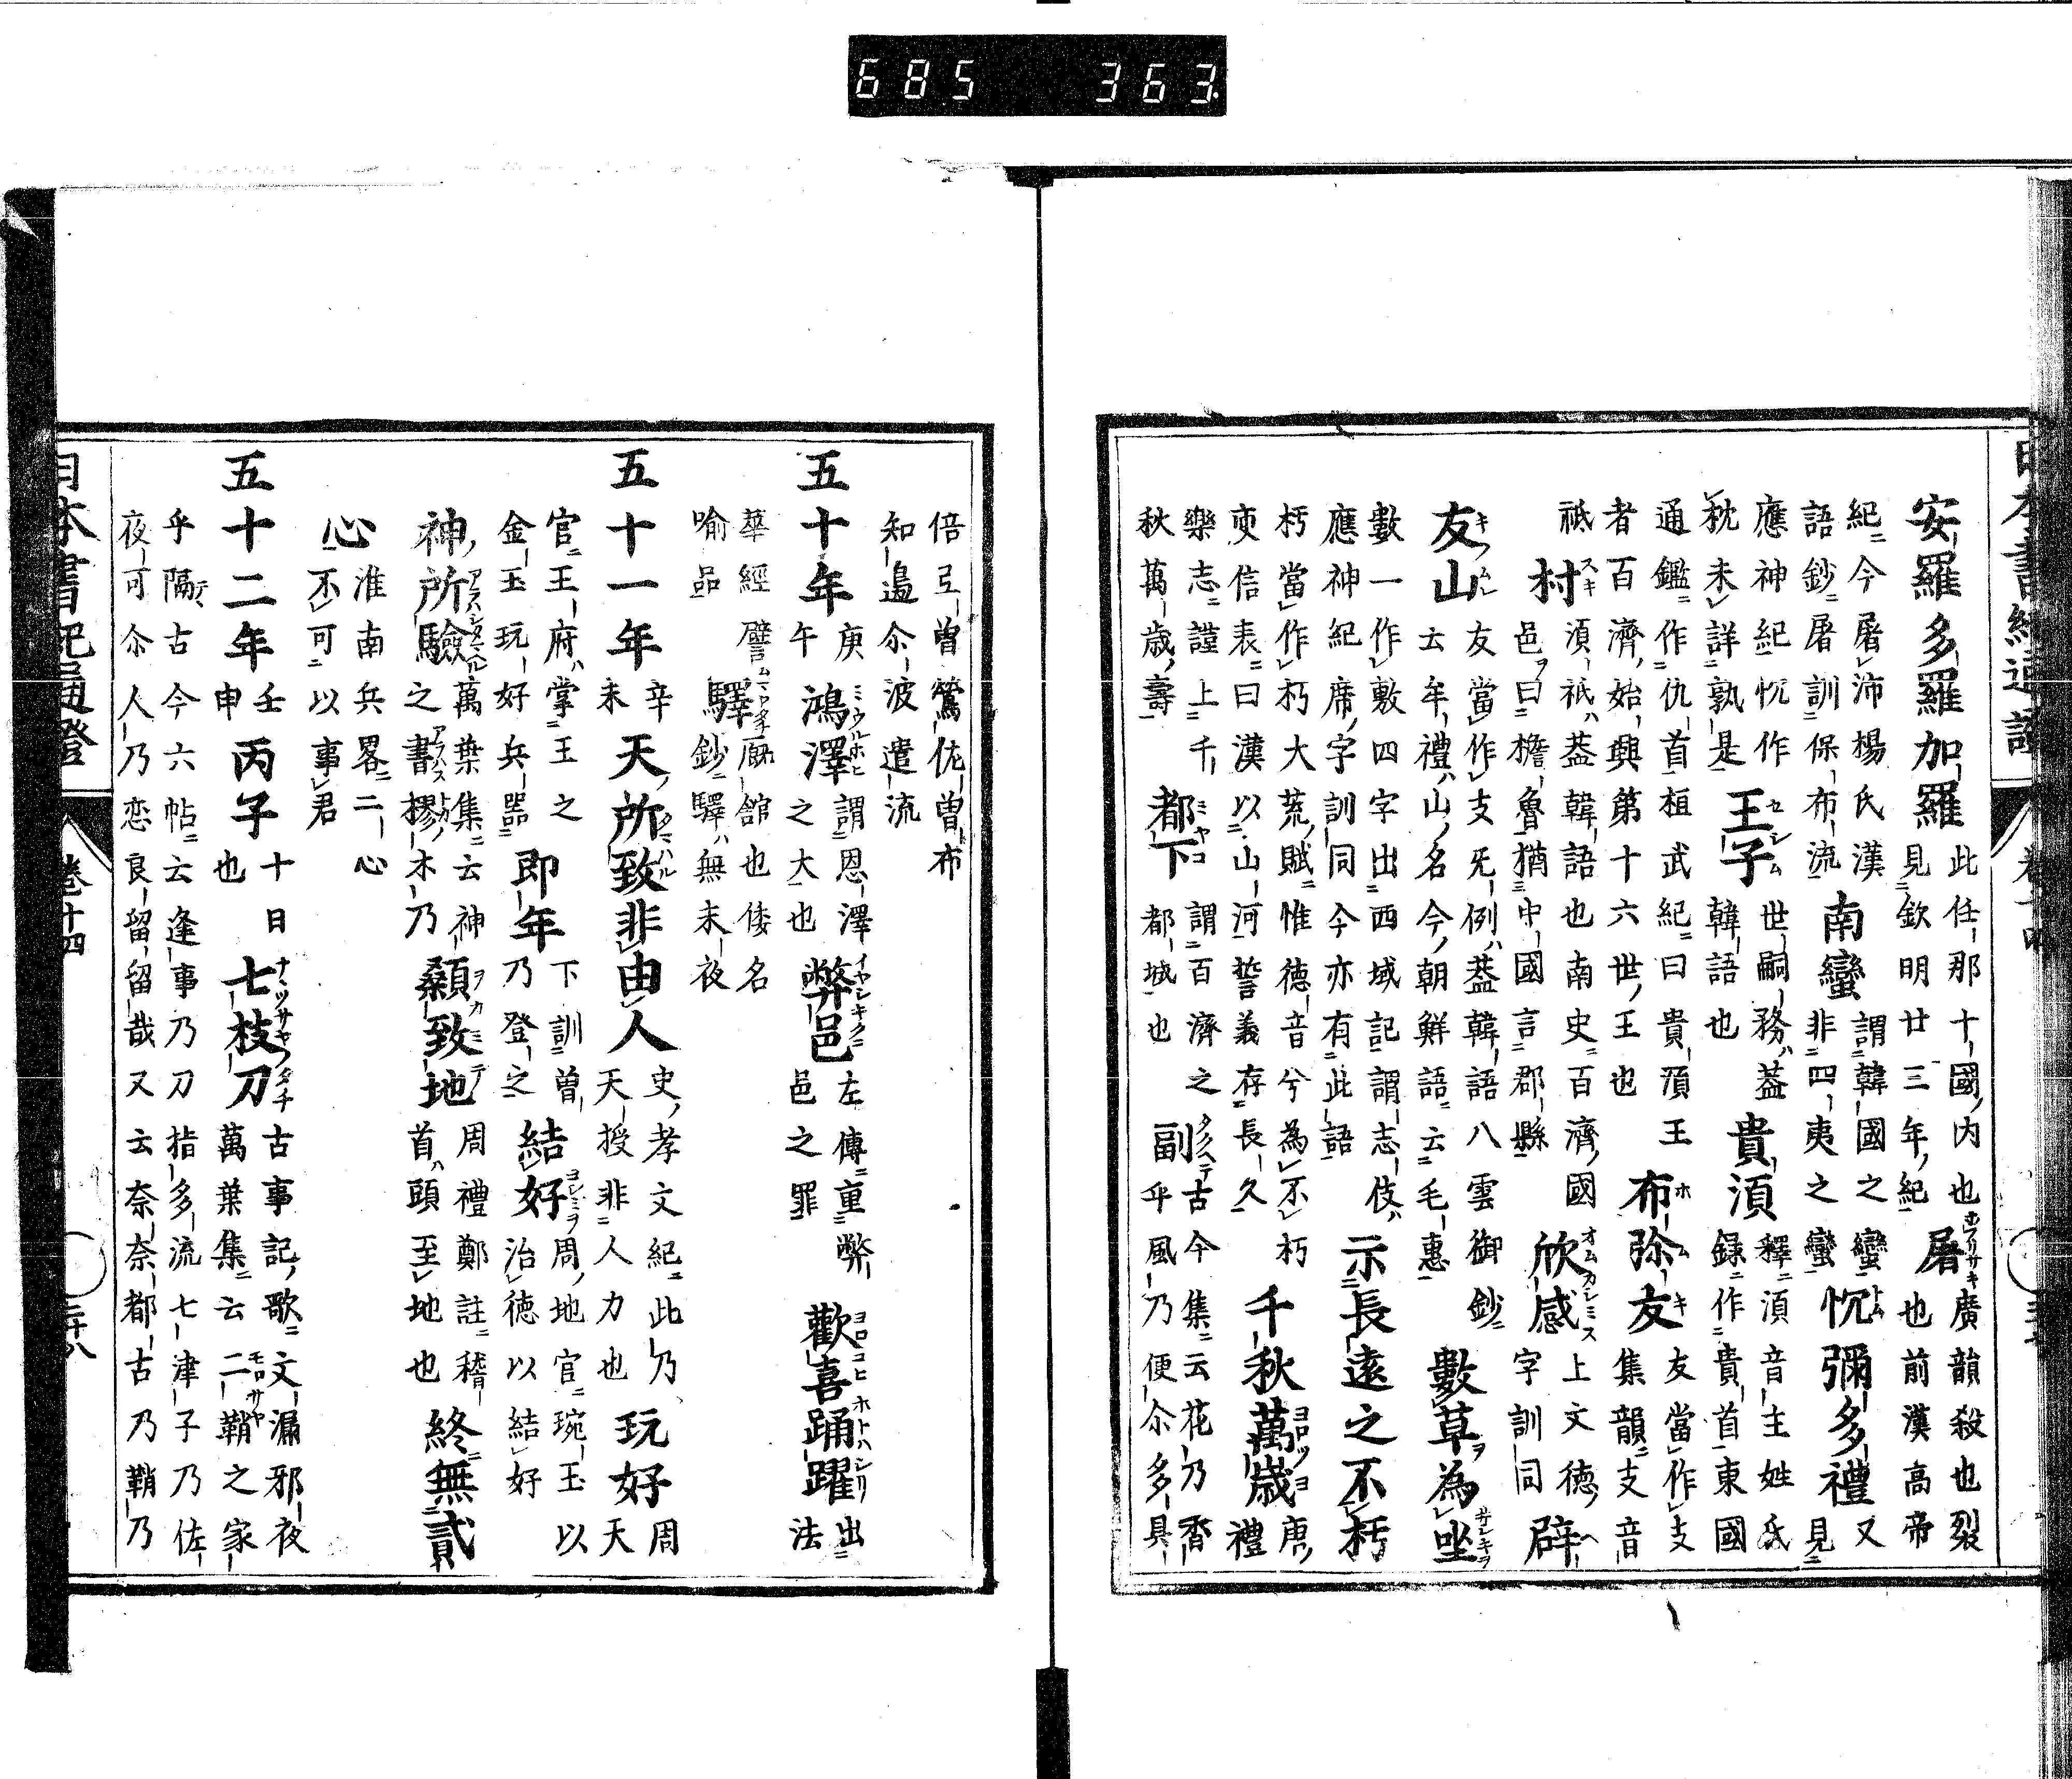 685 363
安羅多羅加羅 此任那十國内也 見欽明廿三年紀 屠 廣韻殺也裂也 前漢高帝
紀今屠沛楊氏漢語鈔屠訓保布流 南蠻 謂韓國之蠻非四夷之蠻 忱彌多禮 又見
應神紀忱作枕未詳孰是 王子 世嗣務蓋韓語也 貴湏 釋湏音主姓氏録作貴首東國
通鑑作仇首桓武紀曰貴湏王者百濟始興第十六世王也 布弥友 友當作支集韻支音
祇 村 湏祇蓋韓語也南史百濟國邑曰檐魯猶中國言郡縣 欣感 上文德字訓同 辟
友山 友當作支旡例蓋韓語八雲御鈔云牟禮山名今朝鮮語云毛惠 數草為坐
數一作敷四字出西域記謂志伎 應神紀席字訓同今亦有此語 示長遠之不朽
朽當作朽大荒賦惟德音兮為不朽 㬰信表曰漢以山河誓義存長久 千秋萬歳 唐禮
樂志謹上千秋萬歳壽 都下 謂百濟之都城也 副 古今集云花乃香乎風乃便尒多具
倍弖曽鶯佐曽布
知邉尒波遣流
五十年 庚午 鴻澤 謂恩澤之大也 弊邑 左傳重弊邑之罪 歡喜踊躍 出法
華經譬喻品 驛 廐館也倭名鈔驛無末夜
五十一年 辛未 天所致非由人 史孝文紀此乃天授非人力也 玩好 周天
官王府掌王之金玉玩好兵器 即年 下訓曽乃登之 結好 周地官琬玉以治德以結好
神所驗 萬葉集云神之書樛木乃 顙致地 周禮鄭註稽首頭至地也 終無貳
心 淮南兵畧二心不可以事君
五十二年 壬申 丙子 十日也 七枝刀 古事記歌文漏邪夜 萬葉集云二鞘之家
乎隔古今六帖云逢事乃刀指多流七津子乃佐
夜可尒人乃恋良留留哉又云奈奈都古乃鞘乃
日本書紀通證
卷十四
二十八